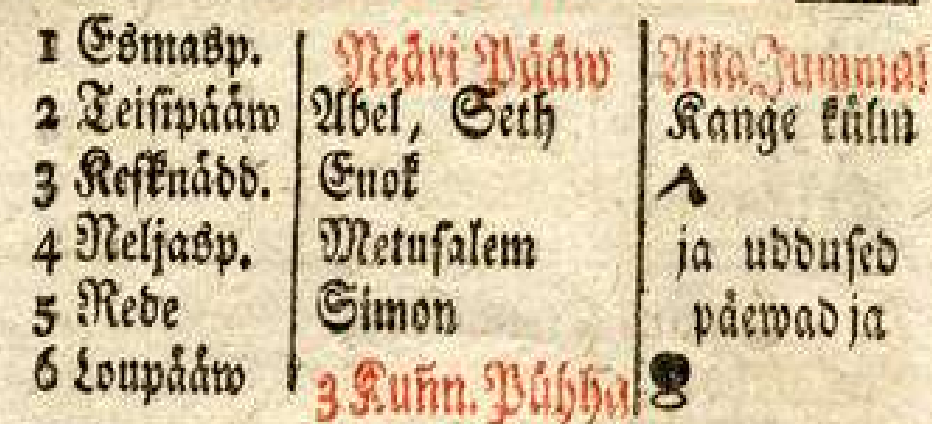 1 Esmasp. Neäri Pääw Aita Jummal
2 Teisipääw Abel, Seth Kange külm
3 Kesknädd. Enok
4 Neljasp. Metusalem ja uddused
5 Rede Simon päewad ja
6 Loupääw 3 Kuñn. Pühha